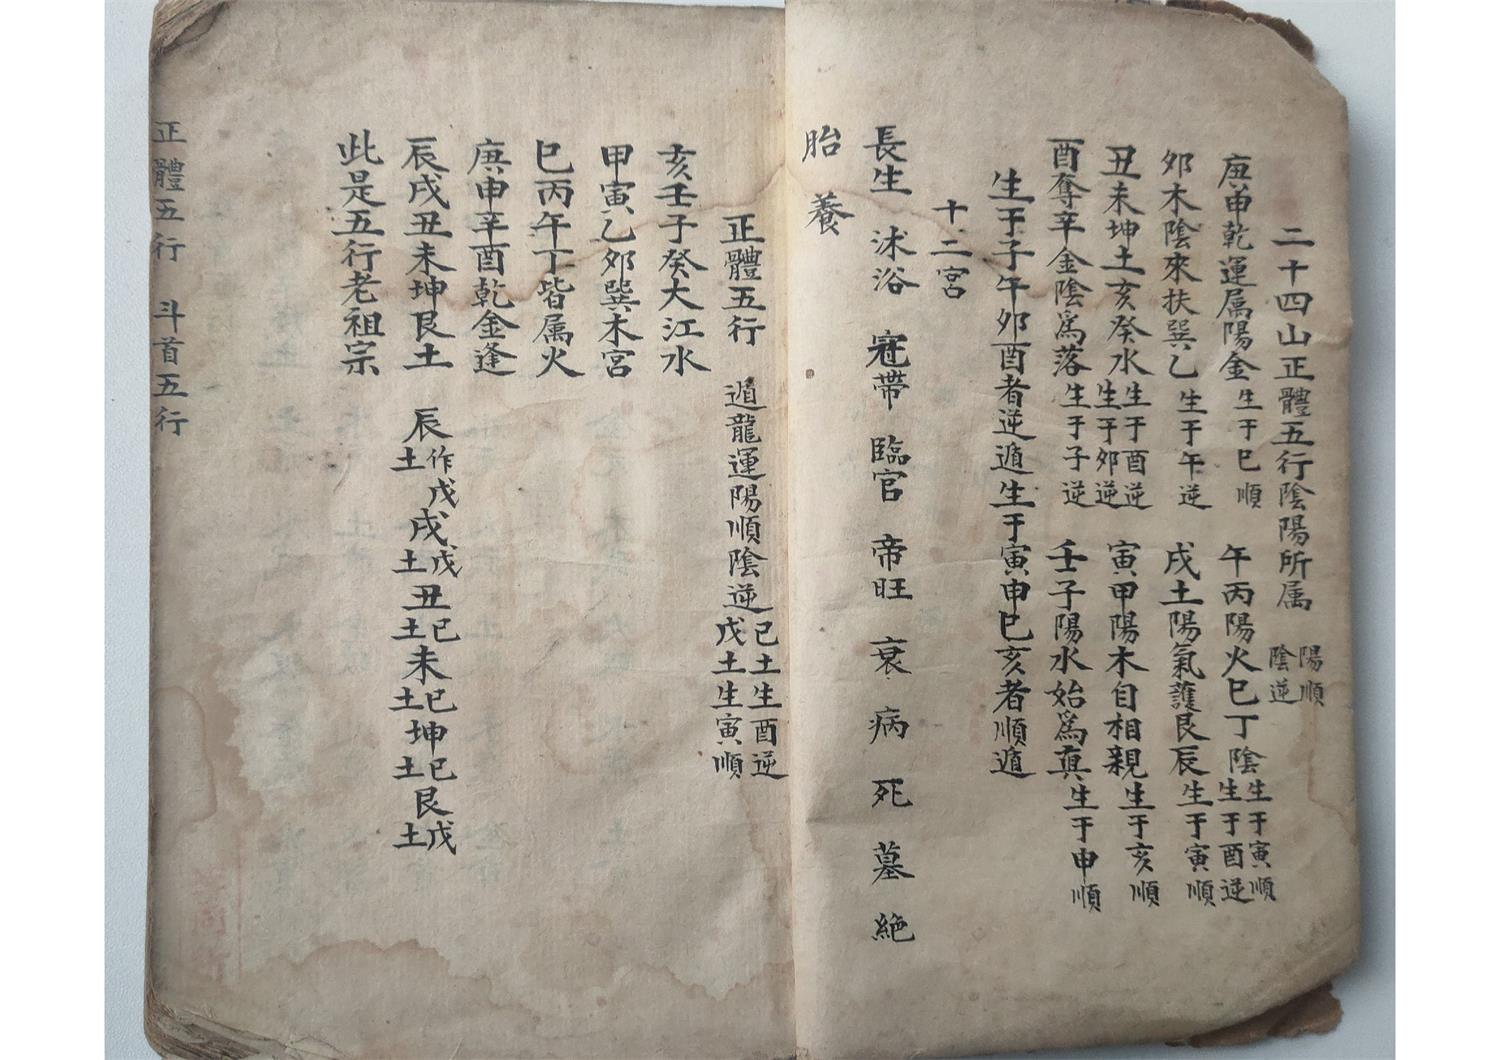 二十四山正體五行陰陽所属 陽順 陰逆
庚申乾運属陽金 生于巳順 午丙陽火巳丁陰 生于寅順 生于酉逆
夘木陰來扶巽乙 生于午逆 戌土陽氣護艮辰 生于寅順
丑未坤土亥癸水 生于酉逆 生于夘逆 寅甲陽木自相親 生于亥順
酉奪辛金陰為落 生于子逆 壬子陽水始為真 生于申順
生于子午夘酉者逆遁生于寅申巳亥者順遁
十二宮
長生 沐浴 冠帶 臨官 帝旺 衰 病 死 墓 絶
胎 養
正體五行 遁龍運陽順陰逆 己土生酉逆 戊土生寅順
亥壬子癸大江水
甲寅乙夘巽木宮
巳丙午丁皆属火
庚申辛酉乾金逢
辰戌丑未坤艮土 辰作戊土戌戊土丑己土未己土坤己土艮戊土
此是五行老祖宗
正體五行 斗首五行